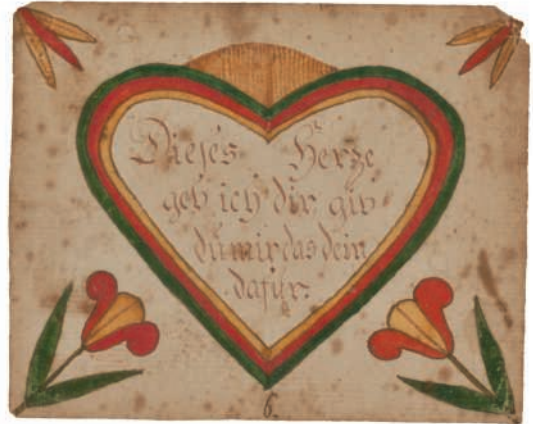 Dieses Herze
geb ich dir gib
du mir das dein
dafur.
6.